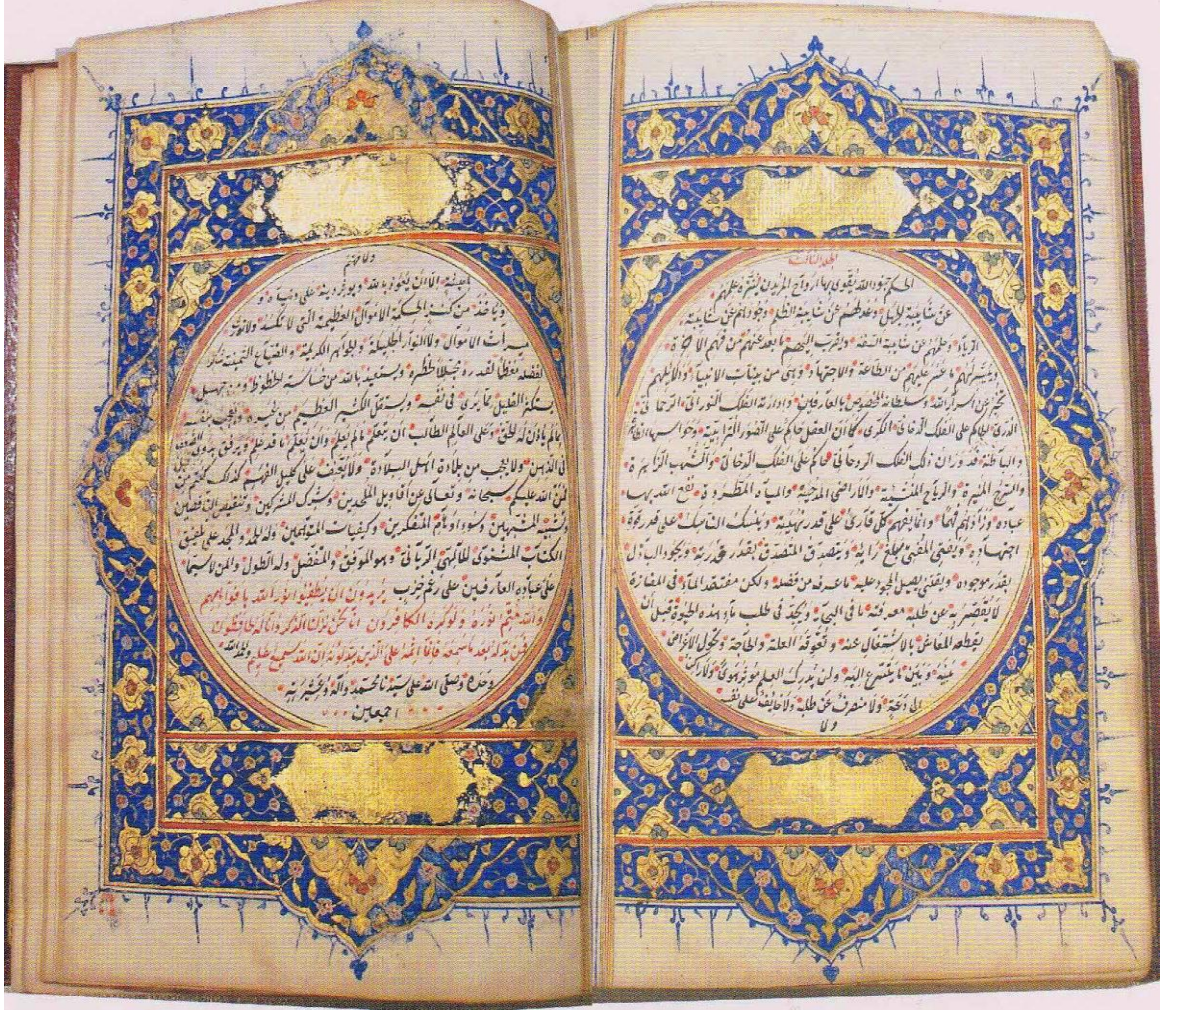 المجلد الثالث
الحكم جنود الله يقوى بها ارواح المريدين ينزه علمهم
عن شايبة الجهل وعدلهم عن شايبة الظلم وجودهم عن شايبة
الرياء وحلمهم عن شايبة السفه ويقرب اليهم ما بعد عنهم من فهم الاخرة
وييسر لهم ما عسر عليهم من الطاعة والاجتهاد وهى من بينات الانبيا ودلايلهم
تخبر عن اسرار الله وسلطانه المخصوص بالعارفين وادارته الفلك النورانى الرحمانى
الدرى الحاكم على الفلك الدخانى الكرى كما ان العقل حاكم على الصور الترابية وحواسها الظاهرة
والباطنة فدوران ذلك الفلك الروحانى حاكم على الفلك الدخانى والشهب الزاهرة
والسرج المنيرة والرياح المنشية والاراضى المدحية والمياه المطردة نفع الله بها
عباده وزادهم فهما وانما يفهم كل قارئ على قدر نهيته وينسك الناسك على قدر قوة
اجتهاده ويفتى المفتى مبلغ رايه ويتصدق المتصدق بقدر قدرته ويجود الباذل
بقدر موجوده ويقتنى المجود عليه ما عرف من فضله ولكن مفتقد الماء فى المفازة
لا يقصر به عن طلبه معرفته ما فى البحار ويجد فى طلب ماء هذه الحيوة قبل ان
يقطعه المعاش بالاشتغال عنه وتعوقه العلة والحاجة وتحول الاغراض
بينه وبين ما يتسرع اليه ولن يدرك العلم موثر هوى ولا راكن
الى دعة ولا منصرف عن طلبه ولا خايف على نفسه
ولا
ولا مهتم
لمعيشته الا ان يعوذ بالله ويوثر دينه على دنياه
وياخذ من كنز الحكمة الاموال العظيمة التى لا تكسد ولا تورث
ميراث الاموال والانوار الجليلة والجواهر الكريمة والضياع الثمينة شاكرا
لفضله معظما لقدره مجللا لخطره ويستعيذ بالله من خساسة الحظوظ ومن جهل
يستكثر القليل مما يرى فى نفسه ويستقل الكثير العظيم من غيره ويعجب بنفسه
بما لم ياذن له الحق وعلى العالم الطالب ان يتعلم ما لم يعلم وان يعلم ما قد علم ويرفق بذوى الضعف
فى الذهن ولا يعجب من بلادة اهل البلادة ولا يعنف على كليل الفهم كذلك كنتم من قبل
فمن الله عليكم سبحانه وتعالى عن اقاويل الملحدين وشرك المشركين وتنقيص الناقصين
وتشبيه المشبهين وسوء اوهام المتفكرين وكيفيات المتوهمين وله الحمد والمجد على تلفيق
الكتاب المثنوى الالهى الربانى وهو الموفق والمتفضل وله الطول والمن لا سيما
على عباده العارفين على رغم حزب يريدون ان يطفئوا نور الله بافواههم
والله متم نوره ولو كره الكافرون انا نحن نزلنا الذكر وانا له لحافظون
فمن بدله بعد ما سمعه فانما اثمه على الذين يبدلونه ان الله سميع عليم والحمد لله
وحده وصلى الله على سيدنا محمد واله وعترته
اجمعين